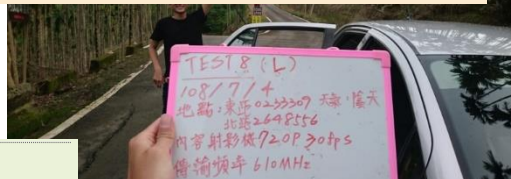 TEST 8 (L)
108/7/4
地點:東經0233307 天氣:陰天
北緯2648556
內容 射影機720P 30fps
傳輸頻率 610MHz